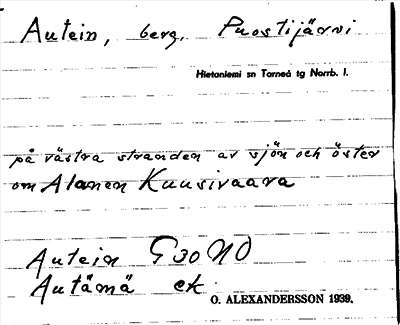 Autein, berg, Puostijärvi
Hietaniemi sn Torneå tg Norrb. l.
på västra stranden av sjön och öster
om Alanen Kuusivaara
Autein G30 NO
Autämä ek.
O. ALEXANDERSSON 1939.